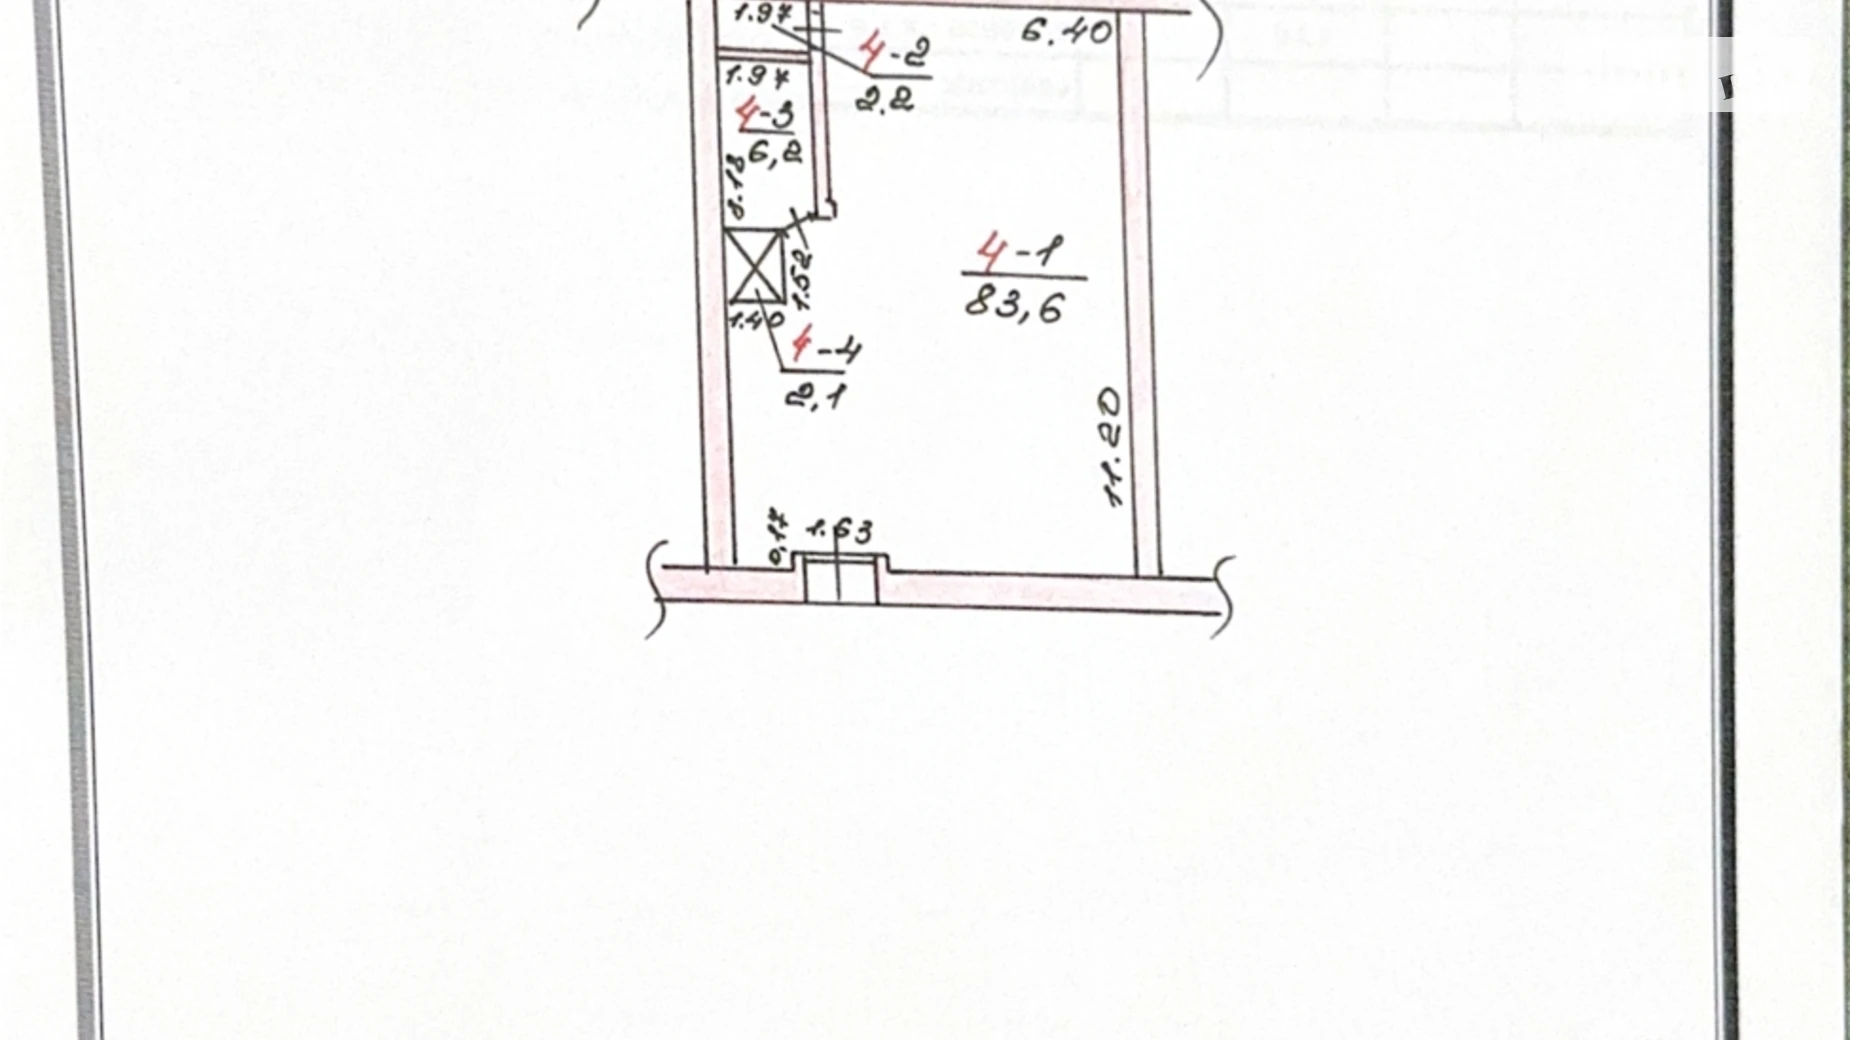 1.97
6.40
4-2
2.2
1.97
4-3
6,2
3.18
4-1
83,6
1.52
1.40
4-4
2,1
11.20
0,17
1.63